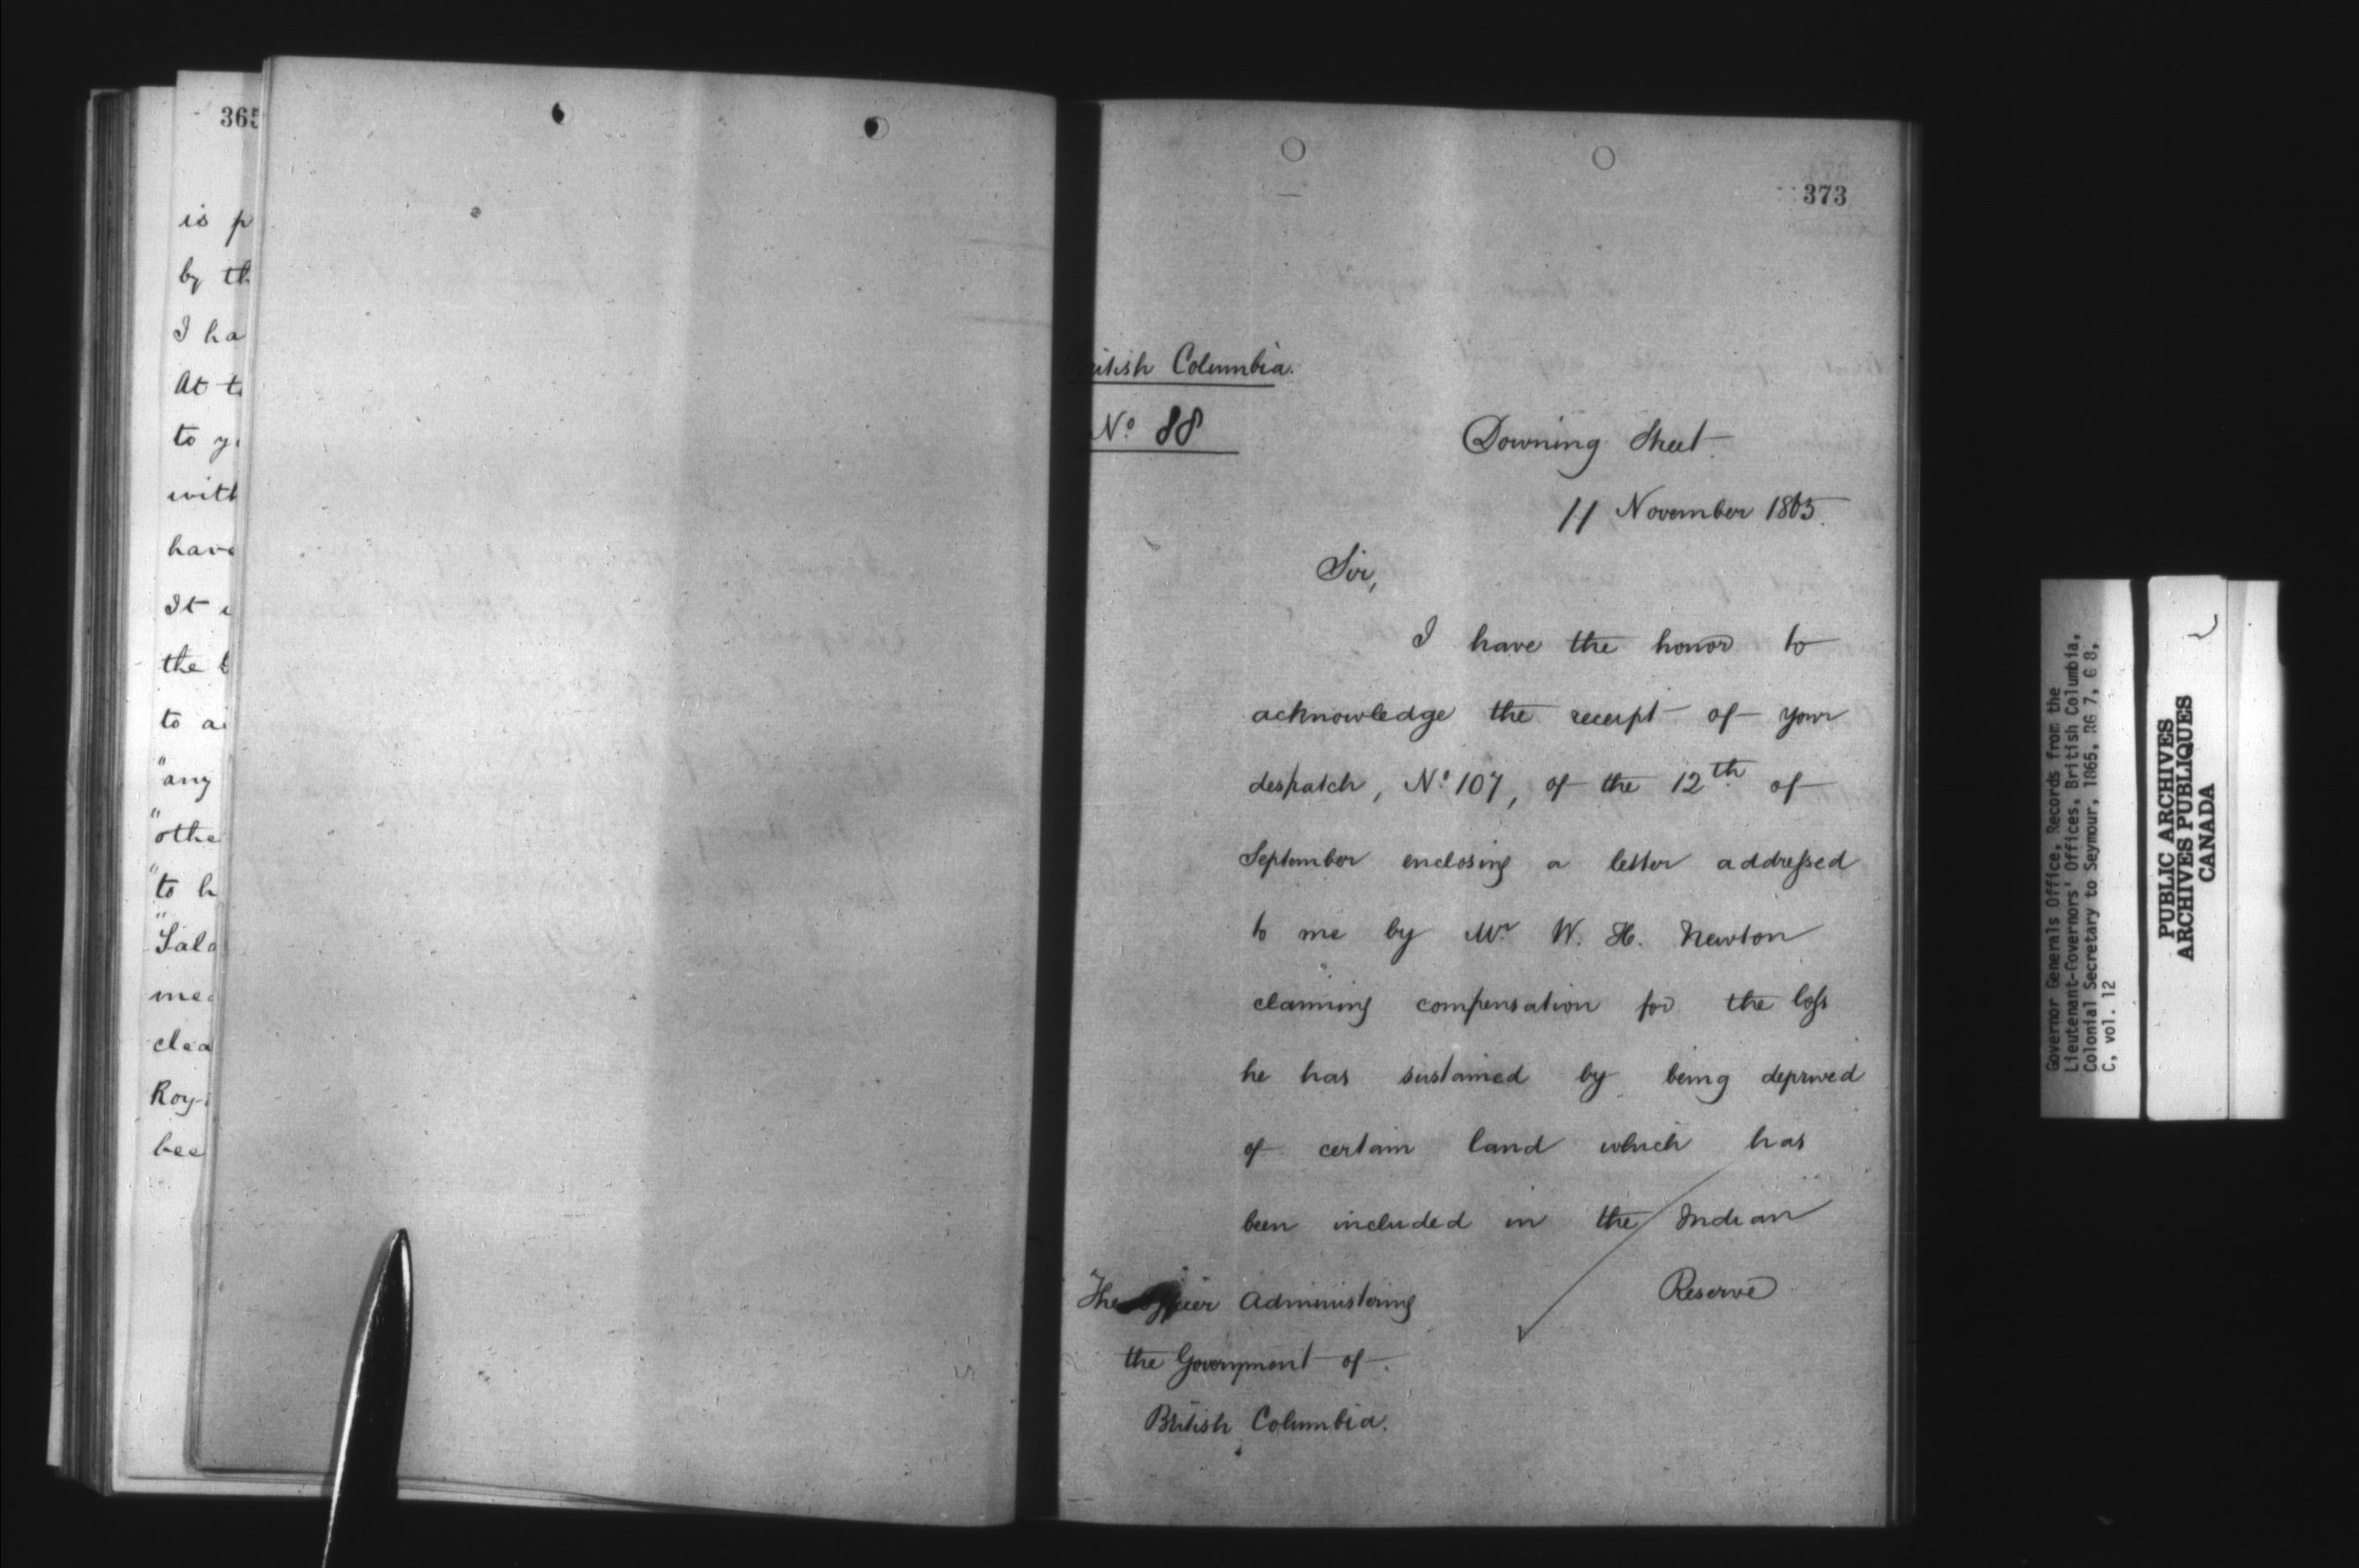 365
is p
by th
I ha
At t
to y
with
have
It
the
to a
"any
"othe
"to h
"Sala
me
clea
Roy
bee
373
British Columbia.
No 88
Downing Street
11 November 1865.
Sir,
I have the honor to
acknowledge the receipt of your
despatch, No 107, of the 12th of
September enclosing a letter addressed
to me by Mr W. H. Newton
claiming compensation for the loss
he has sustained by being deprived
of certain land which has
been included in the Indian
Reserve
The Officer Administering
the Government of
British Columbia.
Governor Generals Office, Records from the
Lieutenant-Governors' Offices, British Columbia,
Colonial Secretary to Seymour, 1865, RG 7, G 8,
C, vol. 12
PUBLIC ARCHIVES
ARCHIVES PUBLIQUES
CANADA